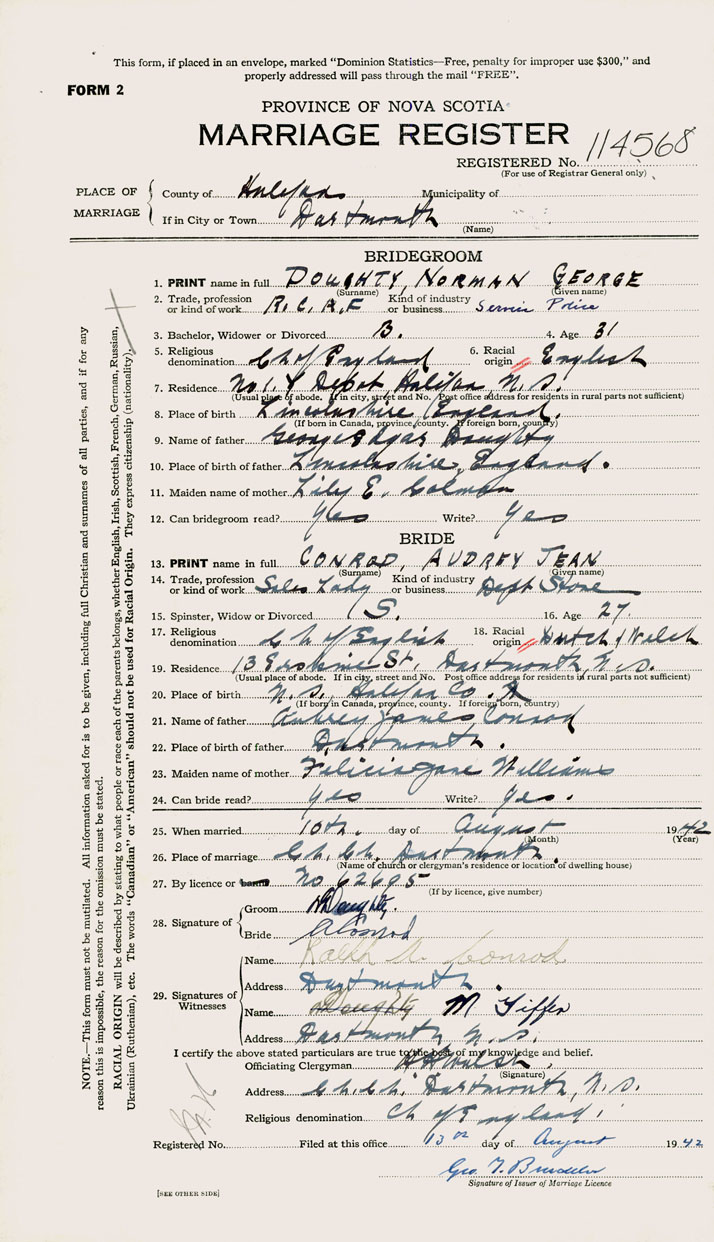 This form, if placed in an envelope, marked “Dominion Statistics—Free, penalty for improper use $300,” and
properly addressed will pass through the mail “FREE”.
FORM 2
PROVINCE OF NOVA SCOTIA
MARRIAGE REGISTER
REGISTERED No. 114568
(For use of Registrar General only)
PLACE OF MARRIAGE
County of Halifax Municipality of
If in City or Town Dartmouth
(Name)
BRIDEGROOM
1. PRINT name in full DOUGHTY, NORMAN GEORGE
(Surname) (Given name)
2. Trade, profession or kind of work R.C.A.F Kind of industry or business Service Police
3. Bachelor, Widower or Divorced B. 4. Age 31
5. Religious denomination Ch of England 6. Racial origin English
7. Residence No 1. Y Depot Halifax N.S.
(Usual place of abode. If in city, street and No. Post office address for residents in rural parts not sufficient)
8. Place of birth Lincolnshire England.
(If born in Canada, province, county. If foreign born, country)
9. Name of father George Edgar Doughty
10. Place of birth of father Lincolnshire, England.
11. Maiden name of mother Lily E. Colman
12. Can bridegroom read? Yes Write? Yes
BRIDE
13. PRINT name in full CONROD, AUDREY JEAN
(Surname) (Given name)
14. Trade, profession or kind of work Sales Lady Kind of industry or business Dept Store
15. Spinster, Widow or Divorced S. 16. Age 27.
17. Religious denomination Ch of English 18. Racial origin Dutch & Welch
19. Residence 13 Erskine St. Dartmouth, N.S.
(Usual place of abode. If in city, street and No. Post office address for residents in rural parts not sufficient)
20. Place of birth N.S. Halifax Co.
(If born in Canada, province, county. If foreign born, country)
21. Name of father Aubrey James Conrod
22. Place of birth of father Dartmouth.
23. Maiden name of mother Felicia Jane Williams
24. Can bride read? Yes Write? Yes.
25. When married 10th. day of August 1942
(Month) (Year)
26. Place of marriage Ch. Ch. Dartmouth.
(Name of church or clergyman's residence or location of dwelling house)
27. By licence or banns No 62695
(If by licence, give number)
28. Signature of
Groom N Doughty.
Bride A Conrod
29. Signatures of Witnesses
Name Conrod
Address Dartmouth.
Name Doughty M
Address Dartmouth N.S.
I certify the above stated particulars are true to the best of my knowledge and belief.
Officiating Clergyman
(Signature)
Address Ch. Ch. Dartmouth, N.S.
Religious denomination Ch of England
Registered No. Filed at this office 13 day of August 1942
Geo.
Signature of Issuer of Marriage Licence
[SEE OTHER SIDE]
NOTE.—This form must not be mutilated. All information asked for is to be given, including full Christian and surnames of all parties, and if for any
reason this is impossible, the reason for the omission must be stated.
RACIAL ORIGIN will be described by stating to what people or race each of the parents belongs, whether English, Irish, Scottish, French, German, Russian,
Ukrainian (Ruthenian), etc. The words “Canadian” or “American” should not be used for Racial Origin. They express citizenship (nationality).